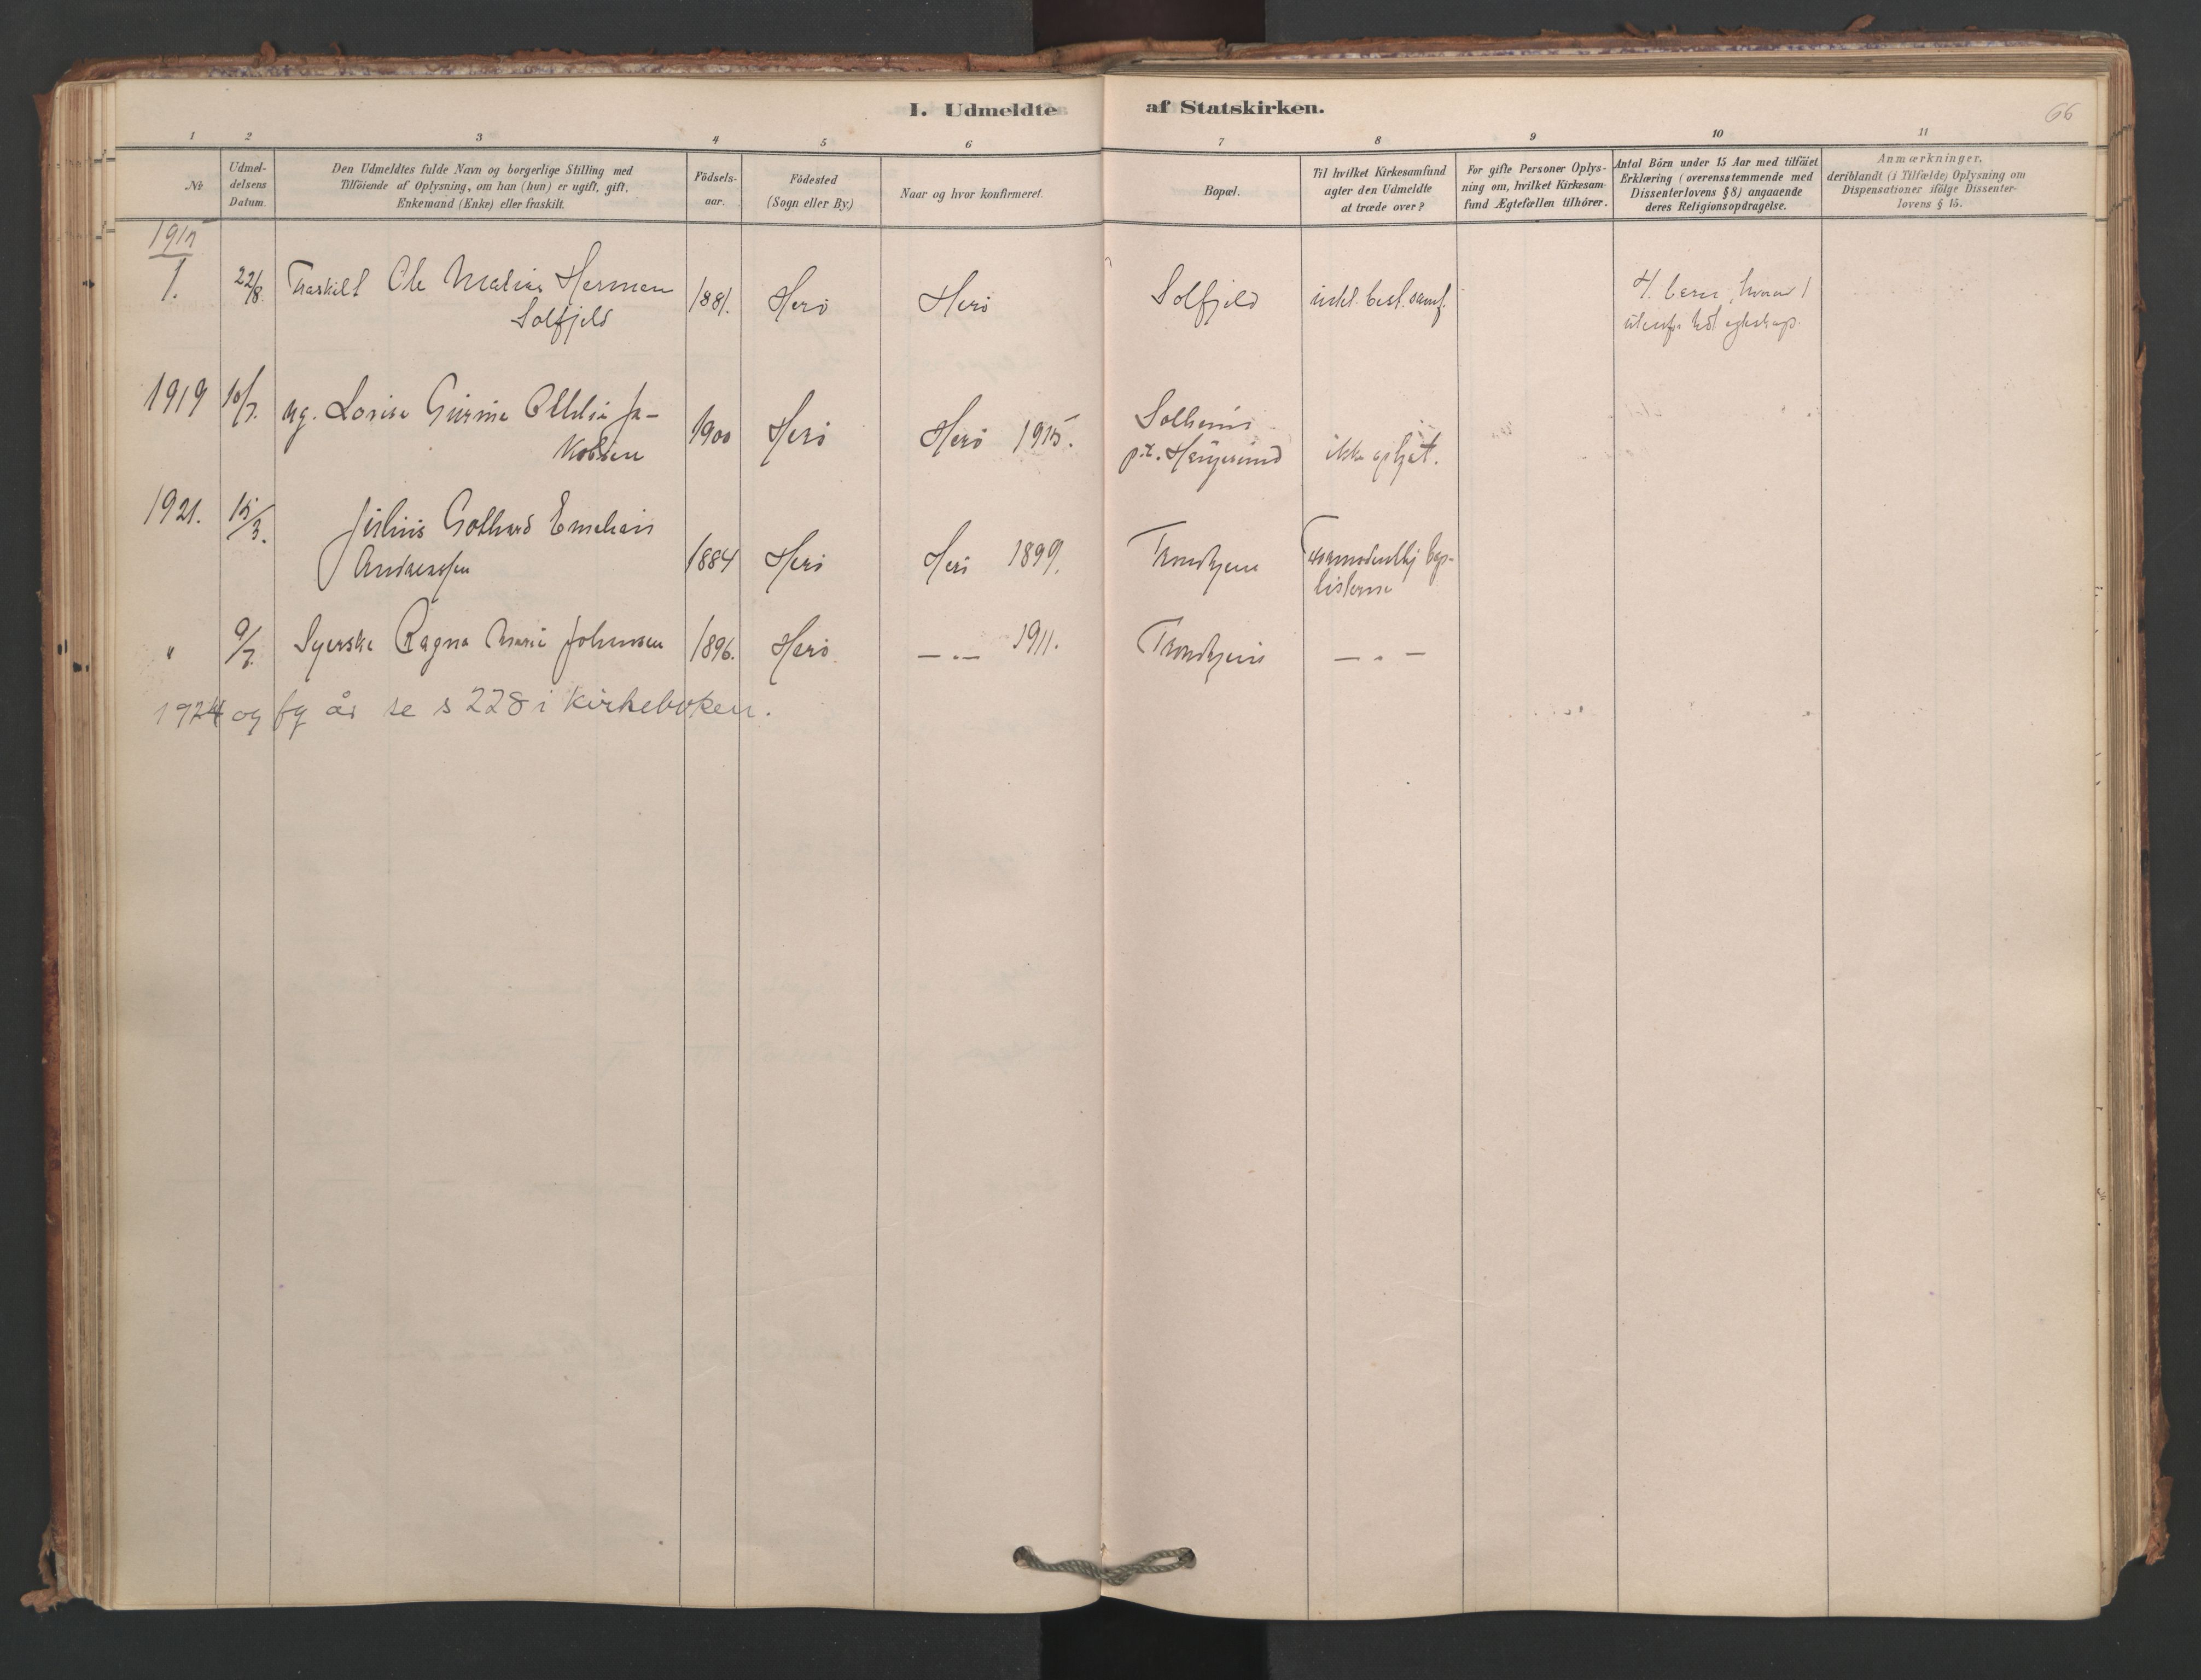 I. Udmeldte af Statskirken.
66
1 2 3 4 5 6 7 8 9 10 11
Nr.
Udmel-
delsens
Datum.
Den Udmeldtes fulde Navn og borgerlige Stilling med
Tilföiende af Oplysning, om han (hun) er ugift, gift,
Enkemand (Enke) eller fraskilt.
Födsels-
aar.
Födested
(Sogn eller By)
Naar og hvor konfirmeret.
Bopæl.
Til hvilket Kirkesamfund
agter den Udmeldte
at træde over?
For gifte Personer Oplys-
ning om, hvilket Kirkesam-
fund Ægtefællen tilhörer.
Antal Börn under 15 Aar med tilföiet
Erklæring (overensstemmende med
Dissenterlovens § 8) angaaende
deres Religionsopdragelse.
Anmærkninger,
deriblandt (i Tilfælde) Oplysning om
Dispensationer ifölge Dissenter-
lovens § 15.
1915
1. 22/8. Fraskilt Ole Matias Herman 1881. Herö Herö Solfjeld intet best. samf. 4. børn, hvorav 1
Solfjeld utenfor
1919 10/7. ug. Lovise Ja- 1900 Herö Herö 1915. Solheim
kobsen p.t. ikke opgit.
1921. 15/3. Julius Gothard Emelius
Andreassen 1884 Herö Herö 1899. Trondhjem bap-
tisterne
" 9/7. Syerske Ragna Marie Johansen 1896. Herö —"— 1911. Trondhjem — " —
1924 og fg år se s 228 i kirkeboken.